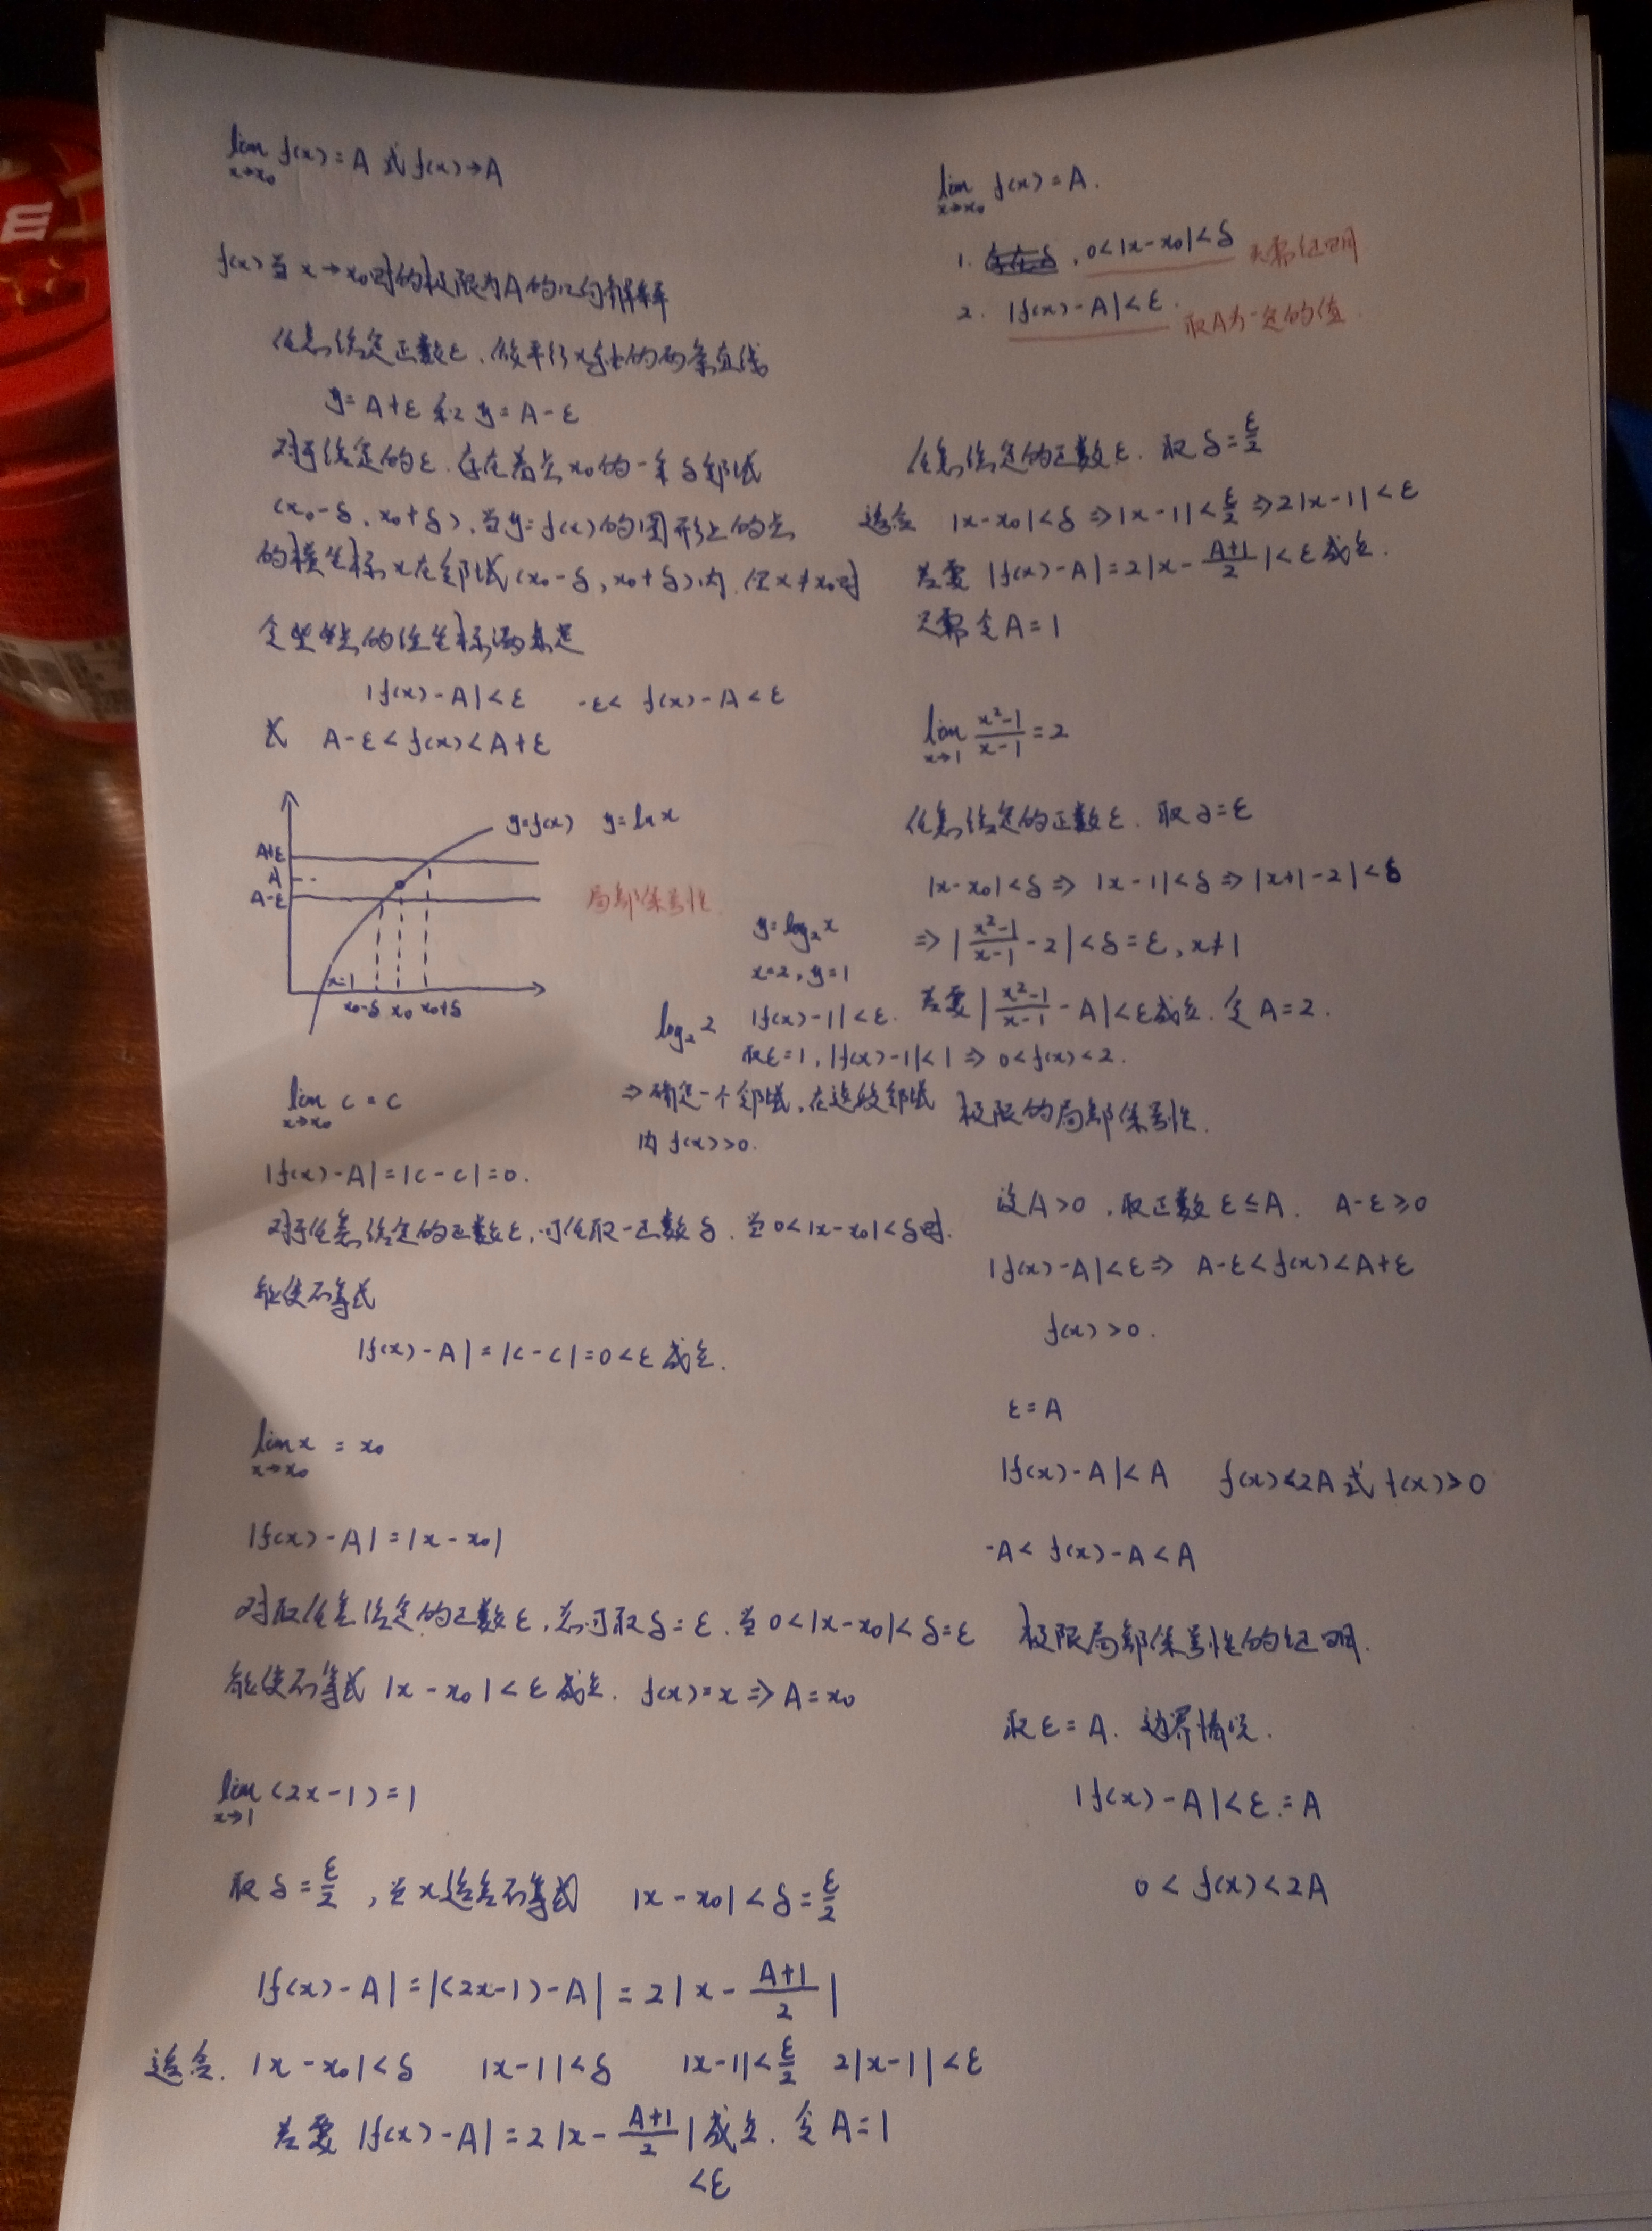 lim f(x) = A 或 f(x)→A
x→x₀
f(x) 当 x→x₀时的极限为A的几何解释
任意给定正数ε. 做平行x轴的两条直线
y = A+ε 和 y = A-ε
对于给定的ε. 存在着点x₀的一个δ邻域
(x₀-δ, x₀+δ), 当y=f(x)的图形上的点
的横坐标x在邻域(x₀-δ, x₀+δ)内, 但x≠x₀时
这些点的纵坐标满足
|f(x)-A|<ε -ε< f(x)-A<ε
或 A-ε<f(x)<A+ε
y=f(x) y=ln x
A+ε
A
A-ε
x=1
x₀-δ x₀ x₀+δ
局部保号性
y=log₂x
x=2, y=1
log₂2 |f(x)-1|<ε.
取ε=1, |f(x)-1|<1 ⇒ 0<f(x)<2.
⇒确定一个邻域, 在这段邻域
内 f(x)>0.
lim c = c
x→x₀
|f(x)-A|=|c-c|=0.
对于任意给定的正数ε, 可任取一正数δ. 当0<|x-x₀|<δ时.
能使不等式
|f(x)-A|=|c-c|=0<ε 成立.
lim x = x₀
x→x₀
|f(x)-A|=|x-x₀|
对取任意给定的正数ε, 总可取δ=ε. 当0<|x-x₀|<δ=ε
能使不等式 |x-x₀|<ε 成立. f(x)=x ⇒ A=x₀
lim (2x-1)=1
x→1
取δ=ε/2, 当x适合不等式 |x-x₀|<δ=ε/2
|f(x)-A|=|(2x-1)-A|=2|x-(A+1)/2|
适合. |x-x₀|<δ |x-1|<δ |x-1|<ε/2 2|x-1|<ε
若要 |f(x)-A|=2|x-(A+1)/2| 成立. 令A=1
<ε
lim f(x)=A.
x→x₀
1. 存在δ, 0<|x-x₀|<δ 无需证明
2. |f(x)-A|<ε. 取A为一定的值.
任意给定的正数ε. 取δ=ε/2
适合 |x-x₀|<δ ⇒|x-1|<ε/2 ⇒2|x-1|<ε
若要 |f(x)-A|=2|x-(A+1)/2|<ε成立.
只需令A=1
lim (x²-1)/(x-1)=2
x→1
任意给定的正数ε. 取δ=ε
|x-x₀|<δ ⇒ |x-1|<δ ⇒ |x+1-2|<δ
⇒ |(x²-1)/(x-1)-2|<δ=ε, x≠1
若要|(x²-1)/(x-1)-A|<ε成立. 令A=2.
极限的局部保号性.
设A>0, 取正数ε≤A. A-ε≥0
|f(x)-A|<ε⇒ A-ε<f(x)<A+ε
f(x)>0.
ε=A
|f(x)-A|<A f(x)<2A 或 f(x)>0
-A< f(x)-A<A
极限局部保号性的证明.
取ε=A. 边界情况.
|f(x)-A|<ε=A
0<f(x)<2A